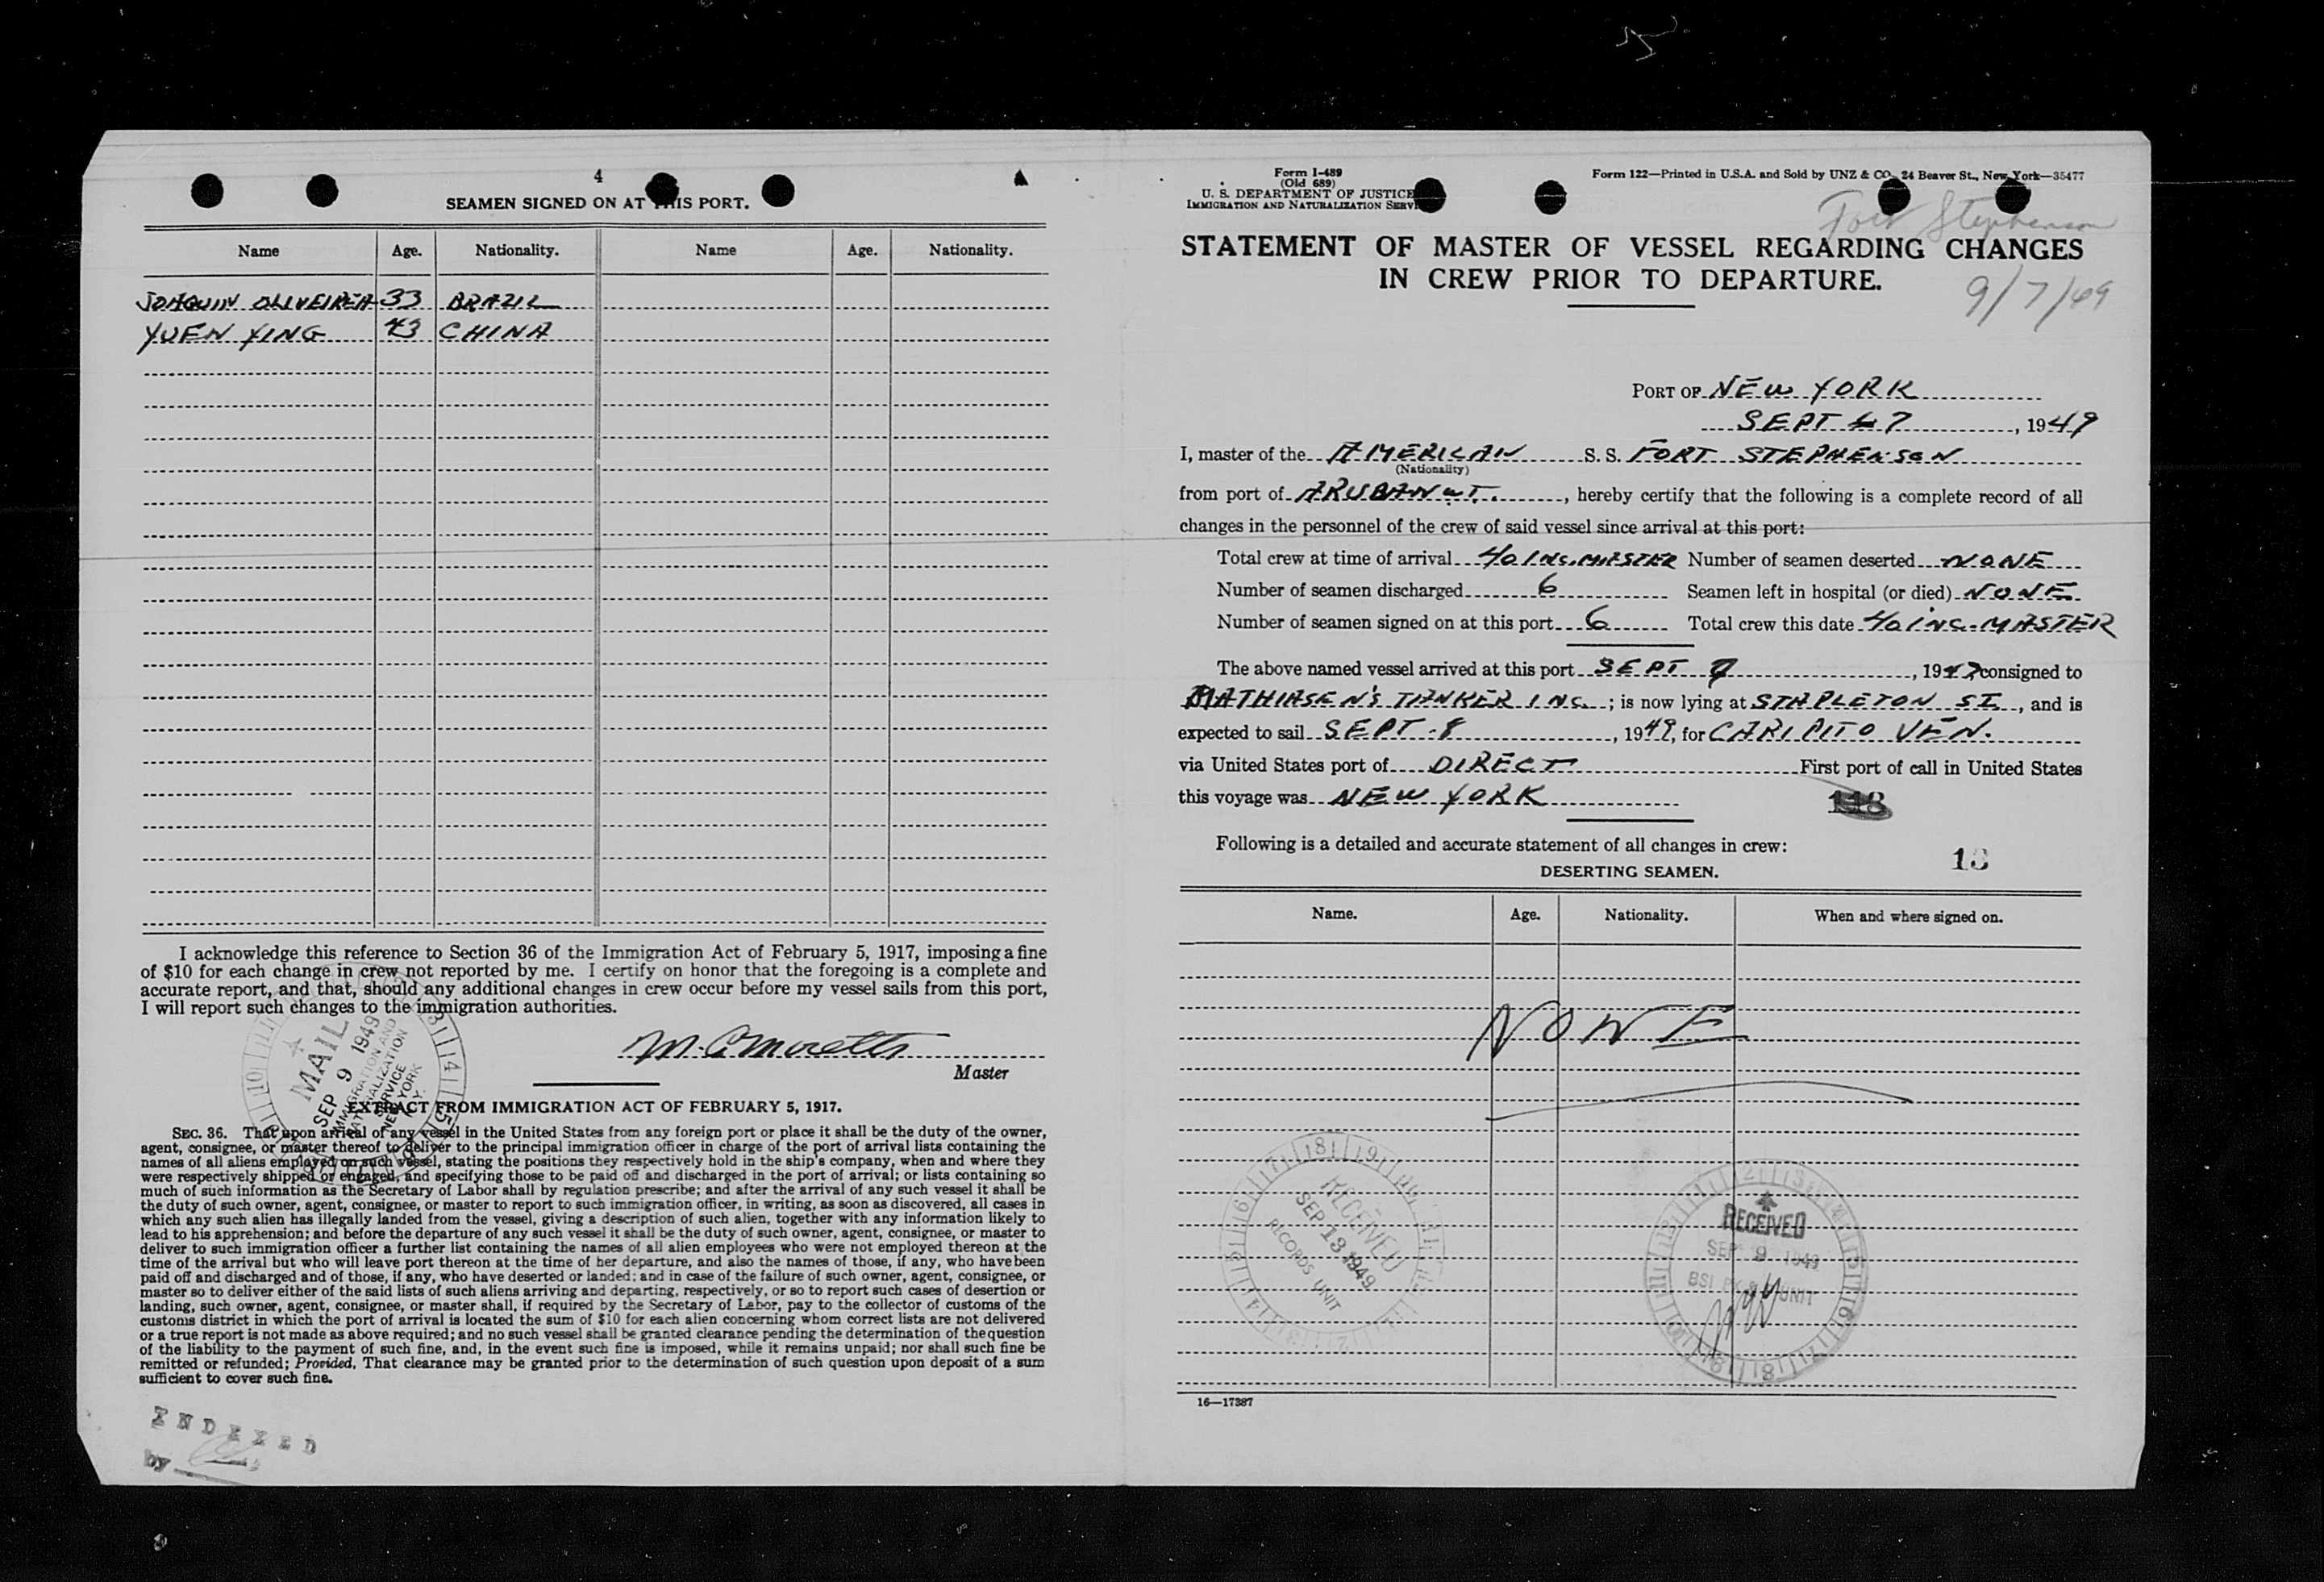 4
SEAMEN SIGNED ON AT THIS PORT.
Name Age. Nationality. Name Age. Nationality.
JOAQUIN OLIVEIREA 33 BRAZIL
YUEN YING 43 CHINA
I acknowledge this reference to Section 36 of the Immigration Act of February 5, 1917, imposing a fine
of $10 for each change in crew not reported by me. I certify on honor that the foregoing is a complete and
accurate report, and that, should any additional changes in crew occur before my vessel sails from this port,
I will report such changes to the immigration authorities.
Master
MAIL
SEP 9 1949
IMMIGRATION AND
NATURALIZATION
SERVICE
NEW YORK
N.Y.
EXTRACT FROM IMMIGRATION ACT OF FEBRUARY 5, 1917.
SEC. 36. That upon arrival of any vessel in the United States from any foreign port or place it shall be the duty of the owner,
agent, consignee, or master thereof to deliver to the principal immigration officer in charge of the port of arrival lists containing the
names of all aliens employed on such vessel, stating the positions they respectively hold in the ship's company, when and where they
were respectively shipped or engaged, and specifying those to be paid off and discharged in the port of arrival; or lists containing so
much of such information as the Secretary of Labor shall by regulation prescribe; and after the arrival of any such vessel it shall be
the duty of such owner, agent, consignee, or master to report to such immigration officer, in writing, as soon as discovered, all cases in
which any such alien has illegally landed from the vessel, giving a description of such alien, together with any information likely to
lead to his apprehension; and before the departure of any such vessel it shall be the duty of such owner, agent, consignee, or master to
deliver to such immigration officer a further list containing the names of all alien employees who were not employed thereon at the
time of the arrival but who will leave port thereon at the time of her departure, and also the names of those, if any, who have been
paid off and discharged and of those, if any, who have deserted or landed; and in case of the failure of such owner, agent, consignee, or
master so to deliver either of the said lists of such aliens arriving and departing, respectively, or so to report such cases of desertion or
landing, such owner, agent, consignee, or master shall, if required by the Secretary of Labor, pay to the collector of customs of the
customs district in which the port of arrival is located the sum of $10 for each alien concerning whom correct lists are not delivered
or a true report is not made as above required; and no such vessel shall be granted clearance pending the determination of the question
of the liability to the payment of such fine, and, in the event such fine is imposed, while it remains unpaid; nor shall such fine be
remitted or refunded; Provided, That clearance may be granted prior to the determination of such question upon deposit of a sum
sufficient to cover such fine.
INDEXED
by
Form I-489
(Old 689)
U. S. DEPARTMENT OF JUSTICE
IMMIGRATION AND NATURALIZATION SERVI
Form 122—Printed in U.S.A. and Sold by UNZ & CO., 24 Beaver St., New York—35477
Fort Stephenson
STATEMENT OF MASTER OF VESSEL REGARDING CHANGES
IN CREW PRIOR TO DEPARTURE.
9/7/49
PORT OF NEW YORK
SEPT 7, 1949
I, master of the AMERICAN S. S. FORT STEPHENSON
(Nationality)
from port of ARUBA N.W.I., hereby certify that the following is a complete record of all
changes in the personnel of the crew of said vessel since arrival at this port:
Total crew at time of arrival 40 INC. MASTER Number of seamen deserted NONE
Number of seamen discharged 6 Seamen left in hospital (or died) NONE
Number of seamen signed on at this port 6 Total crew this date 40 INC. MASTER
The above named vessel arrived at this port SEPT 7, 1949 consigned to
MATHIASEN'S TANKER INC.; is now lying at STAPLETON SI, and is
expected to sail SEPT. 8, 1949, for CARIPITO VEN.
via United States port of DIRECT First port of call in United States
this voyage was NEW YORK
118
Following is a detailed and accurate statement of all changes in crew:
13
DESERTING SEAMEN.
Name. Age. Nationality. When and where signed on.
NONE
RECEIVED
SEP 13 1949
RECORDS UNIT
RECEIVED
SEP 9 1949
BSI UNIT
16—17387